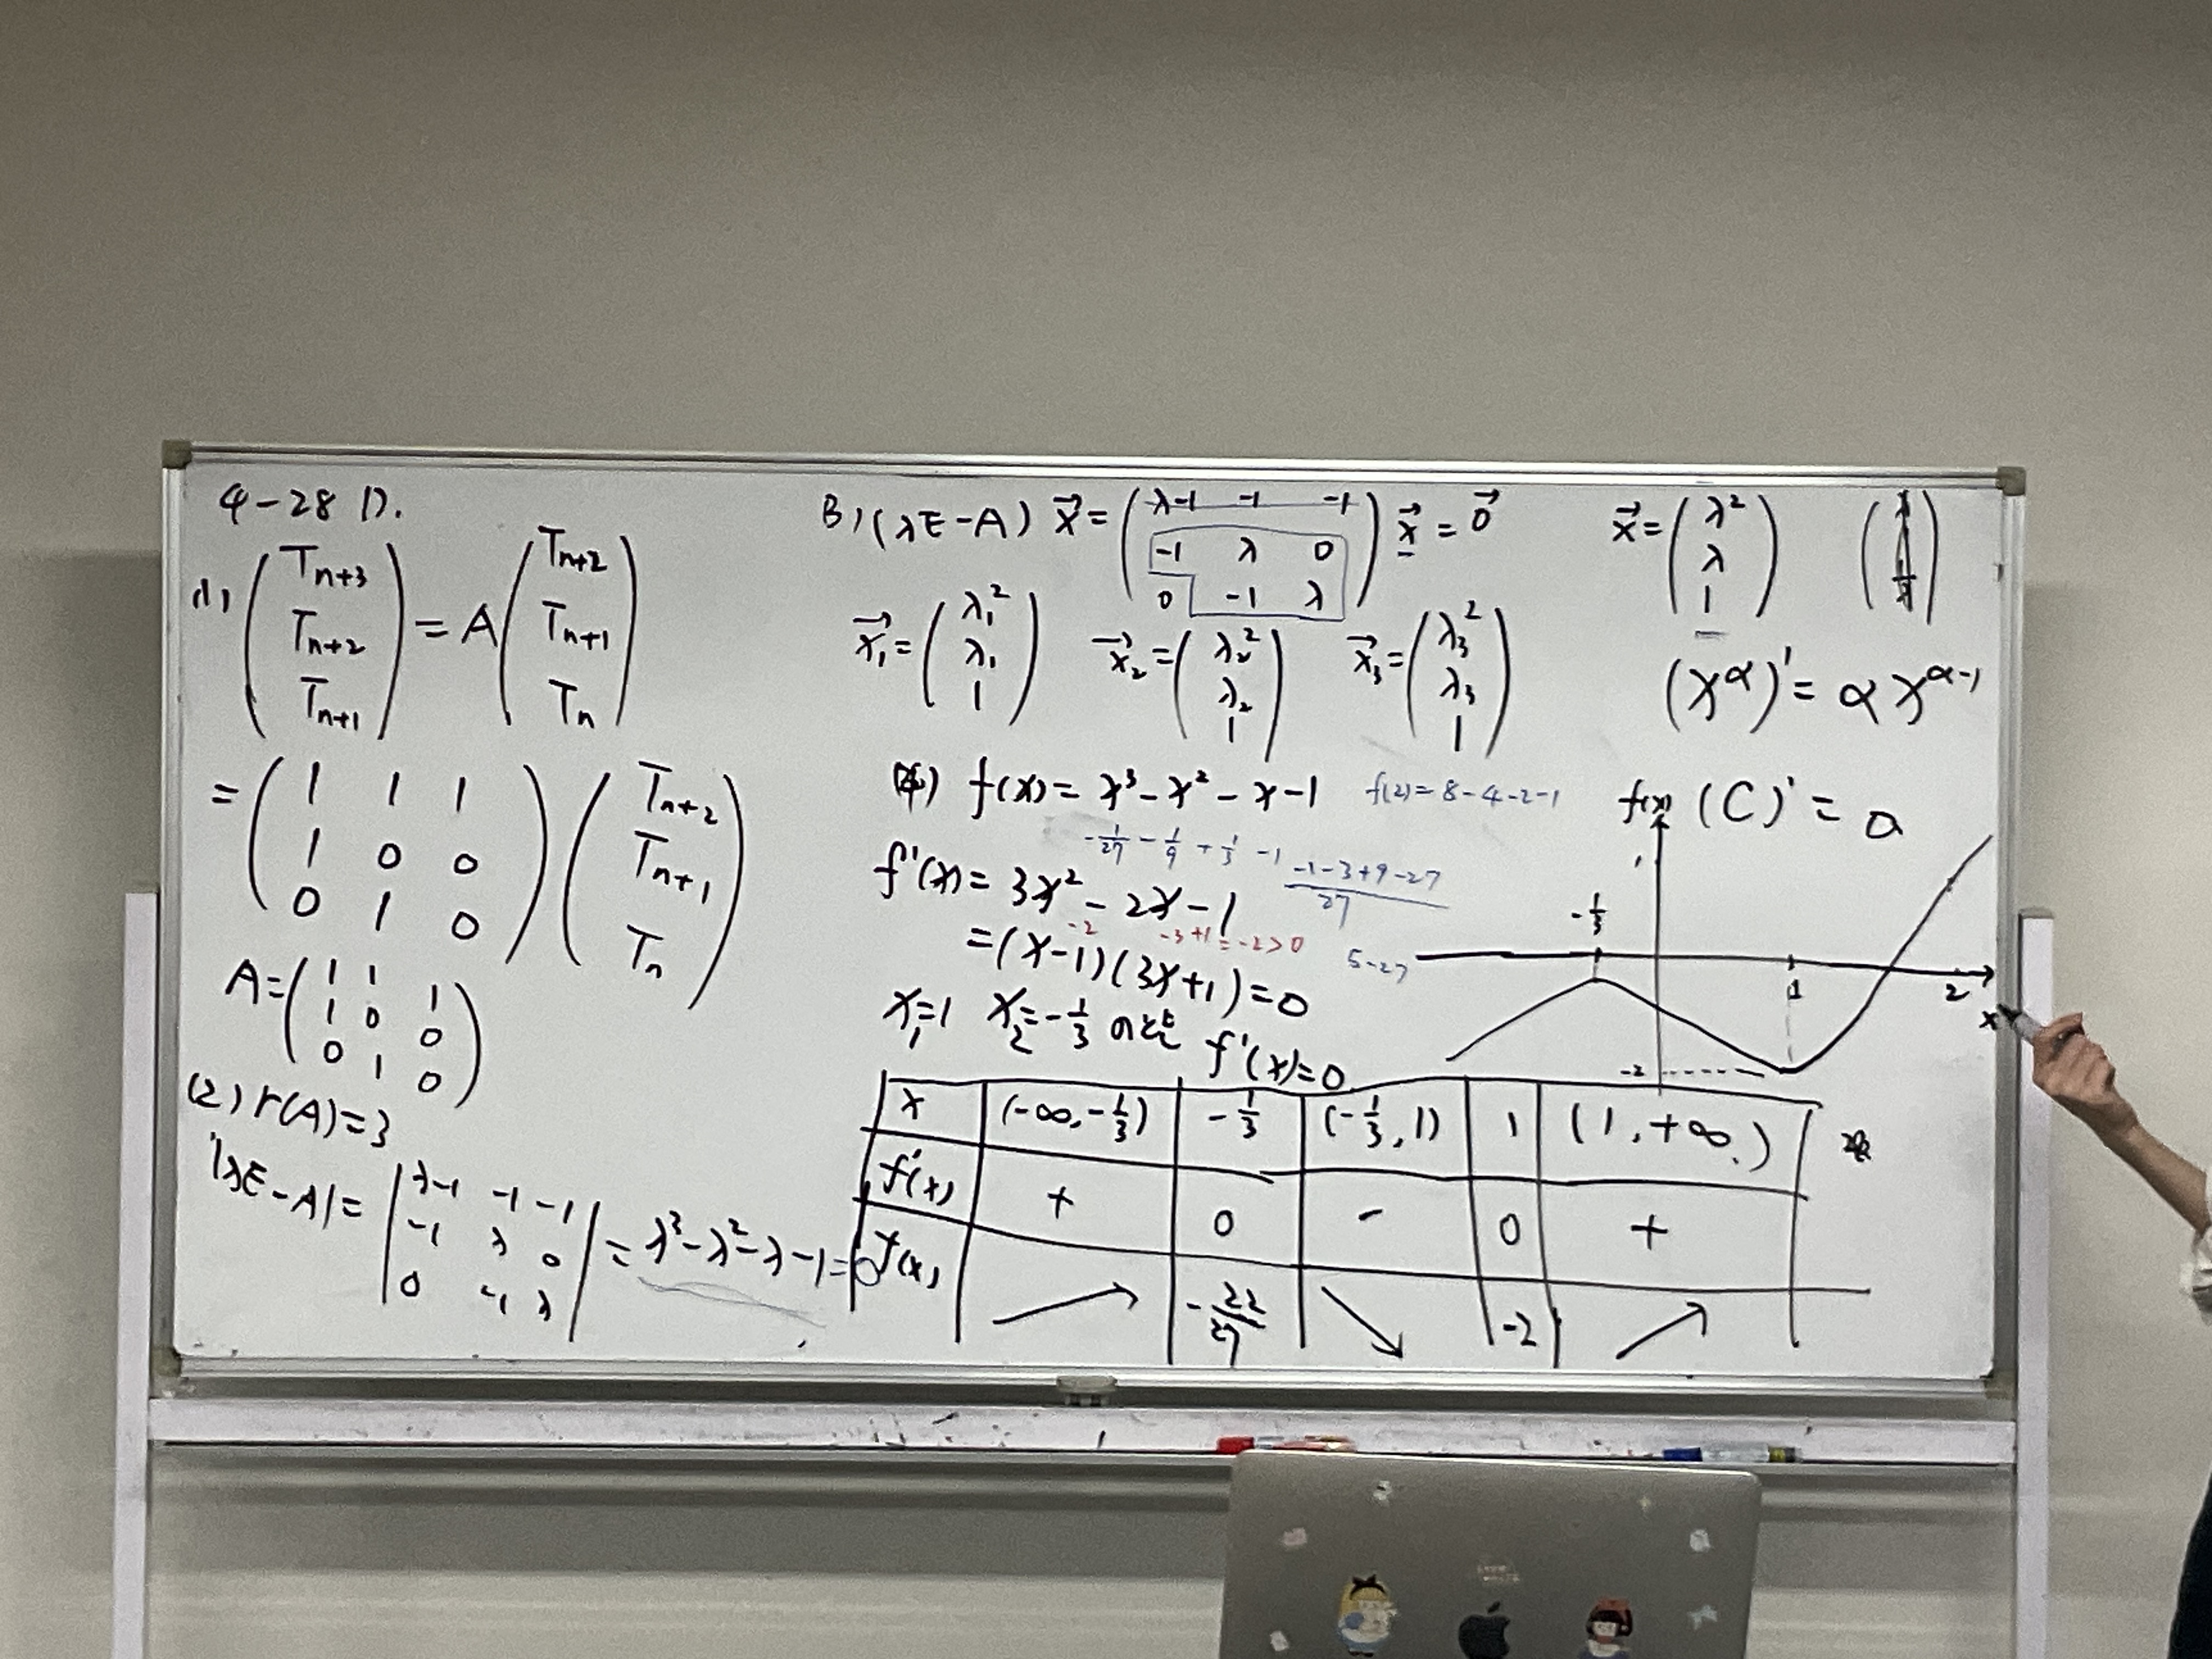 4-28 D.
(1) (T_{n+3} T_{n+2} T_{n+1}) = A (T_{n+2} T_{n+1} T_n)
= (1 1 1
1 0 0
0 1 0) (T_{n+2} T_{n+1} T_n)
A = (1 1 1
1 0 0
0 1 0)
(2) r(A)=3
|λE-A| = |λ-1 -1 -1
-1 λ 0
0 -1 λ| = λ³-λ²-λ-1=0
3) (λE-A) x⃗ = (λ-1 -1 -1
-1 λ 0
0 -1 λ) x⃗ = 0⃗
x⃗ = (λ² λ 1)
x⃗₁ = (λ₁² λ₁ 1) x⃗₂ = (λ₂² λ₂ 1) x⃗₃ = (λ₃² λ₃ 1)
(x^α)' = αx^{α-1}
(4) f(x) = x³-x²-x-1 f(2)=8-4-2-1
(C)' = 0
-1/27 - 1/9 + 1/3 - 1
(-1-3+9-27)/27
f'(x) = 3x²-2x-1
-2 -3+1=-2>0
=(x-1)(3x+1)=0
5-27
x₁=1 x₂=-1/3 のとき f'(x)=0
f(x)
1
-1/3
1 2
x
-2
x (-∞,-1/3) -1/3 (-1/3,1) 1 (1,+∞)
f'(x) + 0 - 0 +
f(x) ↗ -22/27 ↘ -2 ↗